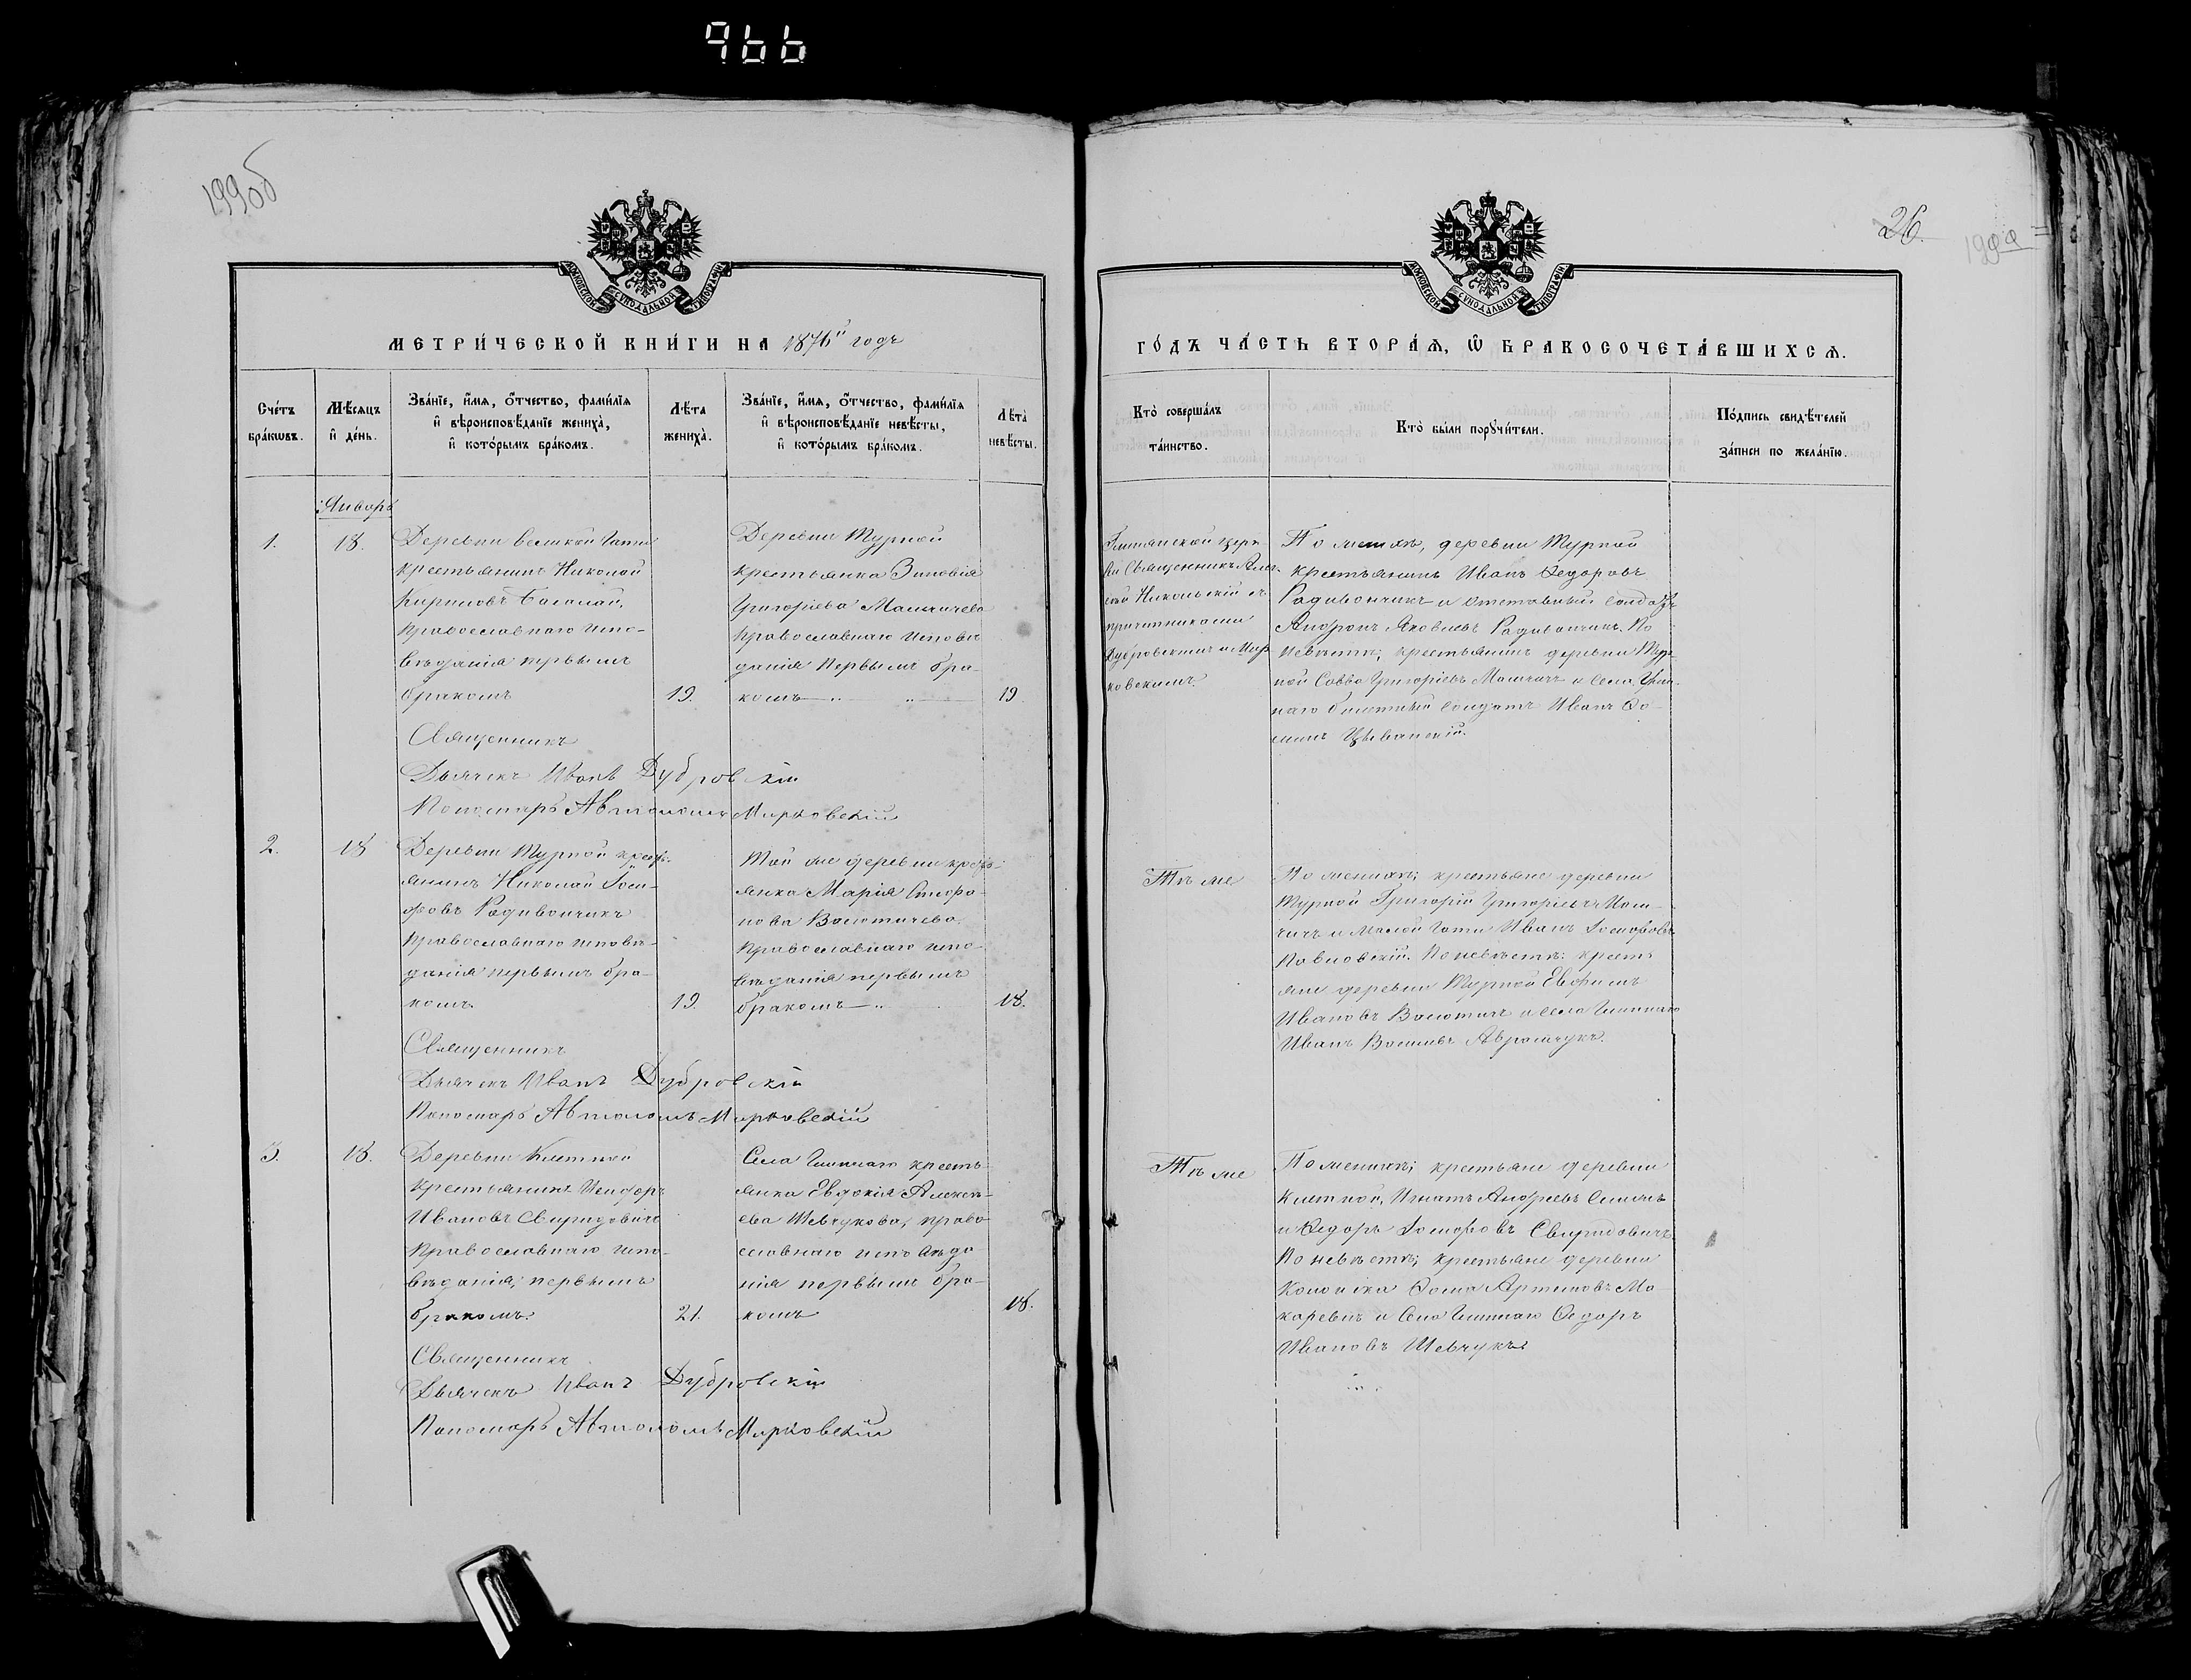 966
199об
26.
МОСКОВСКОЙ СѴНОДАЛЬНОЙ ТИПОГРАФІИ
МЕТРИ́ЧЕСКОЙ КНИ́ГИ НА 1876й годъ
Сче́тъ бра́кѡвъ.
Мѣ́сяцъ и҆ де́нь.
Зва́нїе, и҆́мя, ѻ҆́тчество, фами́лїя
и҆ вѣроисповѣ́данїе жениха̀,
и҆ кото́рымъ бра́комъ.
Лѣ́та жениха̀.
Зва́нїе, и҆́мя, ѻ҆́тчество, фами́лїя
и҆ вѣроисповѣ́данїе невѣ́сты,
и҆ кото́рымъ бра́комъ.
Лѣ́та невѣ́сты.
Январь
1.
18.
Деревни Великой Гати
крестьянинъ Николай
Кириловъ
православнаго испо-
вѣданія первымъ
бракомъ
19.
Деревни Турной
крестьянка Зиновія
Григоріева
православнаго исповѣ
данія первымъ бра-
комъ
19
Священникъ
Дьячекъ Иванъ Дубровскій
Пономарь Автономъ Мирковскій
2.
18
Деревни Турной кресть
янинъ Николай Іоси-
фовъ Радивончикъ
православнаго исповѣ-
данія первымъ бра-
комъ.
19.
Той же деревни кресть-
янка Марія Стефа-
нова Валютичева
православнаго испо-
вѣданія первымъ
бракомъ
18.
Священникъ
Дьячекъ Иванъ Дубровскій
Пономарь Автономъ Мирковскій
3.
18.
Деревни Клетной
крестьянинъ Исидоръ
Ивановъ Свиридовичъ
православнаго испо-
вѣданія, первымъ
бракомъ.
21.
Села Гишнаго кресть-
янка Евдокія Алексѣ-
ева Шевчукова, право-
славнаго исповѣда
нія первымъ бра-
комъ
18.
Священникъ
Дьячекъ Иванъ Дубровскій
Пономарь Автономъ Мирковскій
МОСКОВСКОЙ СѴНОДАЛЬНОЙ ТИПОГРАФІИ
ГО́ДЪ ЧА́СТЬ ВТОРА́Я, Ѡ҆ БРАКОСОЧЕТА́ВШИХСЯ.
Кто̀ соверша́лъ та́инство.
Кто̀ бы́ли порꙋчи́тели.
По́дпись свидѣ́телей за́писи по жела́нїю.
церк-
ви Священникъ
Никольскій съ
причетниками
Дубровскимъ и Мир-
ковскимъ.
По женихѣ, деревни Турной
крестьянинъ Иванъ Ѳедоровъ
Радивончикъ и отставный солдатъ
Андронъ Яковлевъ Радивончикъ. По
невѣстѣ; крестьянинъ деревни Тур-
ной Савва Григорьевъ и села Гиш-
наго билетный солдатъ Иванъ Ѳо-
минъ
Тѣ же
По женихѣ; крестьяне деревни
Турной Григорій Григорьевъ
и Малой Гати Иванъ Іосифовъ
Павловскій. По невѣстѣ: кресть
яне деревни Турной Евфимъ
Ивановъ Валютичъ и села Гишнаго
Иванъ Абрамчукъ.
Тѣ же
По женихѣ; крестьяне деревни
Клетной, Игнатъ Андреевъ
и Ѳедоръ Іосифовъ Свиридовичъ
По невѣстѣ; крестьяне деревни
Ѳома Ма-
каревичъ и Села Гишнаго Ѳедоръ
Ивановъ Шевчукъ